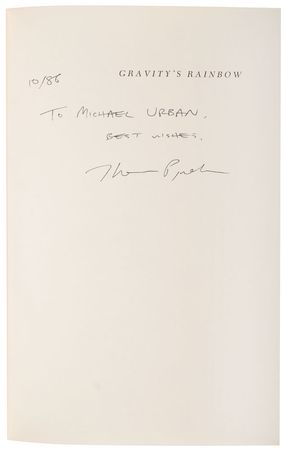 GRAVITY'S RAINBOW
10/86
To MICHAEL URBAN,
BEST WISHES,
Thomas Pynchon